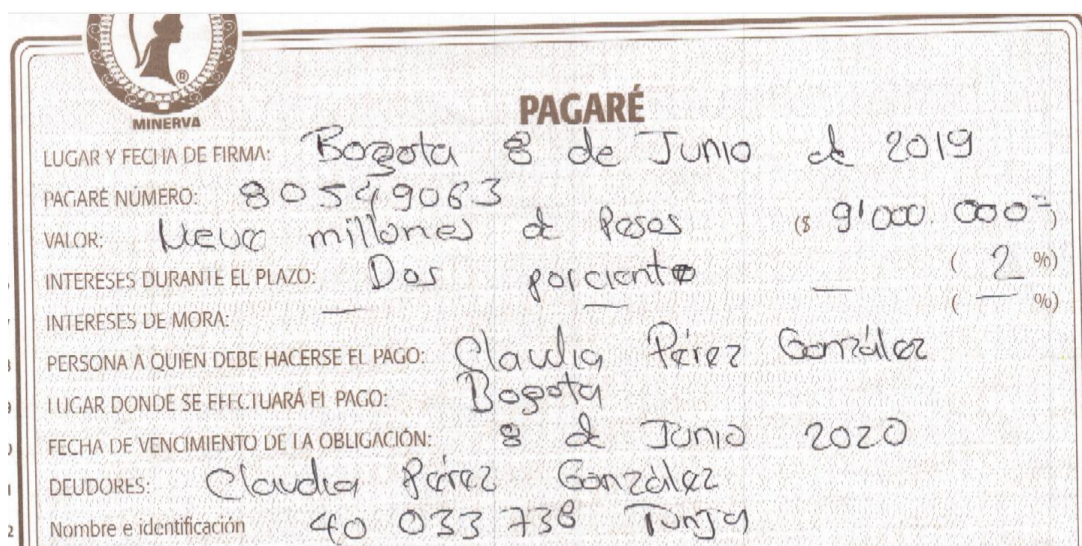 MINERVA
®
PAGARÉ
LUGAR Y FECHA DE FIRMA: Bogota 8 de Junio de 2019
PAGARÉ NÚMERO: 80549063
VALOR: Nueve millones de Pesos ($ 9'000.000=)
INTERESES DURANTE EL PLAZO: Dos porciento — ( 2 %)
INTERESES DE MORA: — — ( — %)
PERSONA A QUIEN DEBE HACERSE EL PAGO: Claudia Pérez González
LUGAR DONDE SE EFECTUARÁ EL PAGO: Bogota
FECHA DE VENCIMIENTO DE LA OBLIGACIÓN: 8 de Junio 2020
DEUDORES: Claudia Pérez González
Nombre e identificación 40 033 738 Tunja